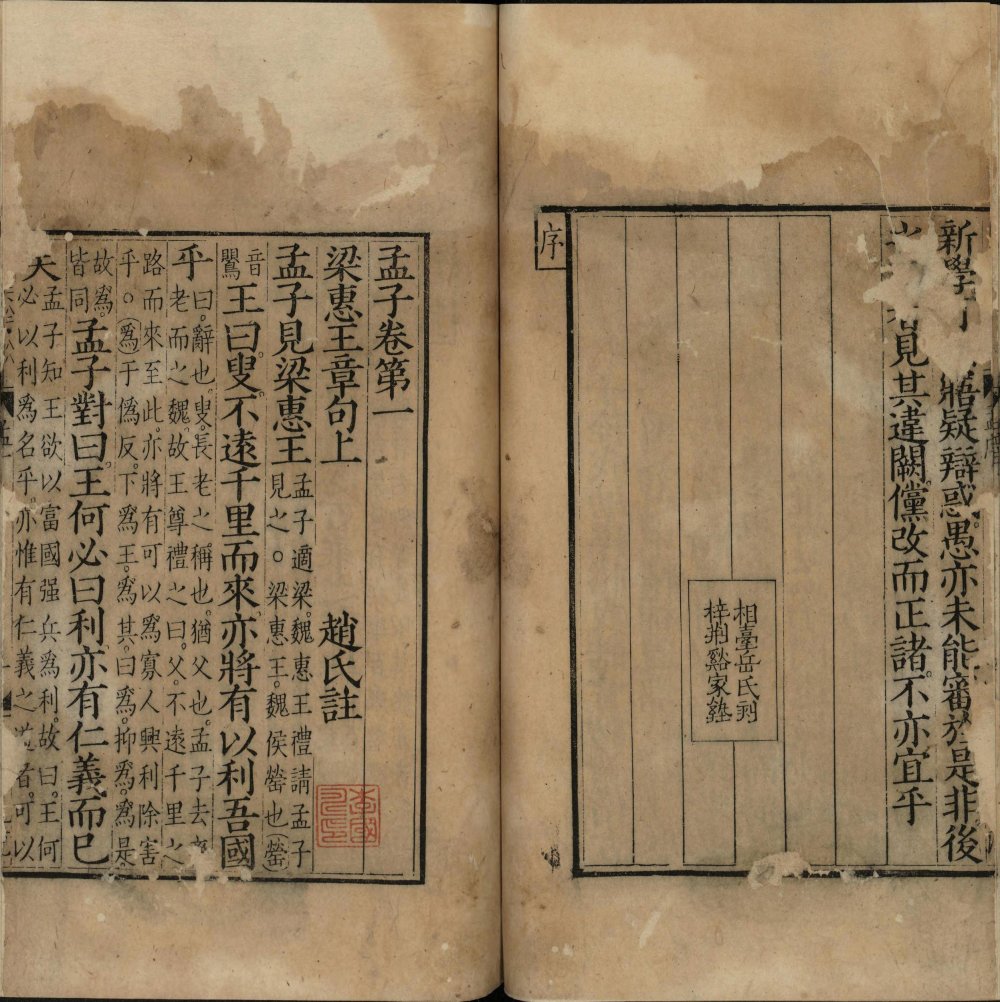 新學寤疑辯惑愚亦未能審於是非後
見其違闕儻改而正諸不亦宜乎
相臺岳氏刻
梓荆谿家塾
序
孟子卷第一
梁惠王章句上 趙氏註
孟子見梁惠王 孟子適梁。魏惠王禮請孟子
見之。○梁惠王。魏侯罃也(罃)
音
鸎
王曰。叟。不遠千里而來。亦將有以利吾國
乎 曰。辭也。叟。長老之稱也。猶父也。孟子去齊
老而之魏。故王尊禮之。曰。父。不遠千里之
路而來至此。亦將有可以爲寡人興利除害
乎。○(爲)于僞反。下爲王。爲其。曰爲。抑爲。爲是
故爲。
皆同
孟子對曰。王何必曰利。亦有仁義而已
矣 孟子知王欲以富國强兵爲利。故曰。王何
必以利爲名乎。亦惟有仁義之道者。可以